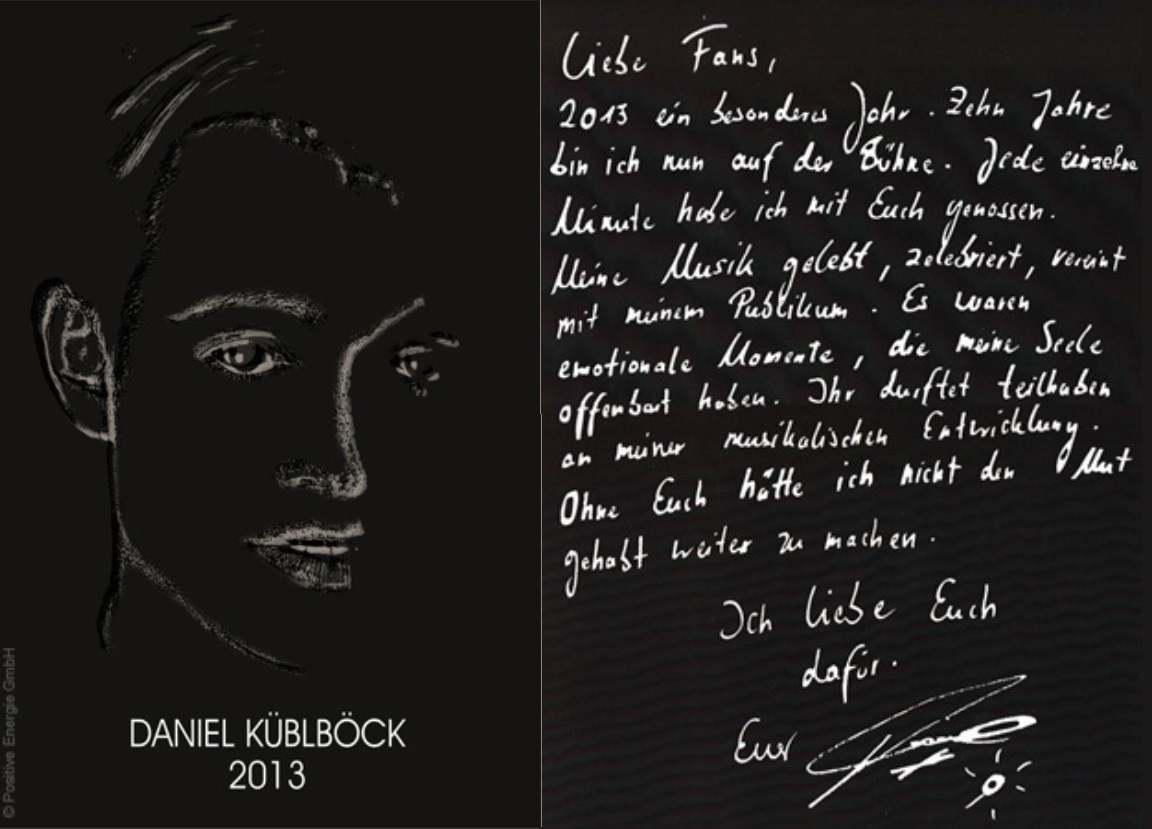 DANIEL KÜBLBÖCK
2013
© Positive Energie GmbH
Liebe Fans,
2013 ein besonderes Jahr. Zehn Jahre
bin ich nun auf der Bühne. Jede einzelne
Minute habe ich mit Euch genossen.
Meine Musik gelebt, zelebriert, vereint
mit meinem Publikum. Es waren
emotionale Momente, die meine Seele
offenbart haben. Ihr durftet teilhaben
an meiner musikalischen Entwicklung.
Ohne Euch hätte ich nicht den Mut
gehabt weiter zu machen.
Ich liebe Euch
dafür.
Euer